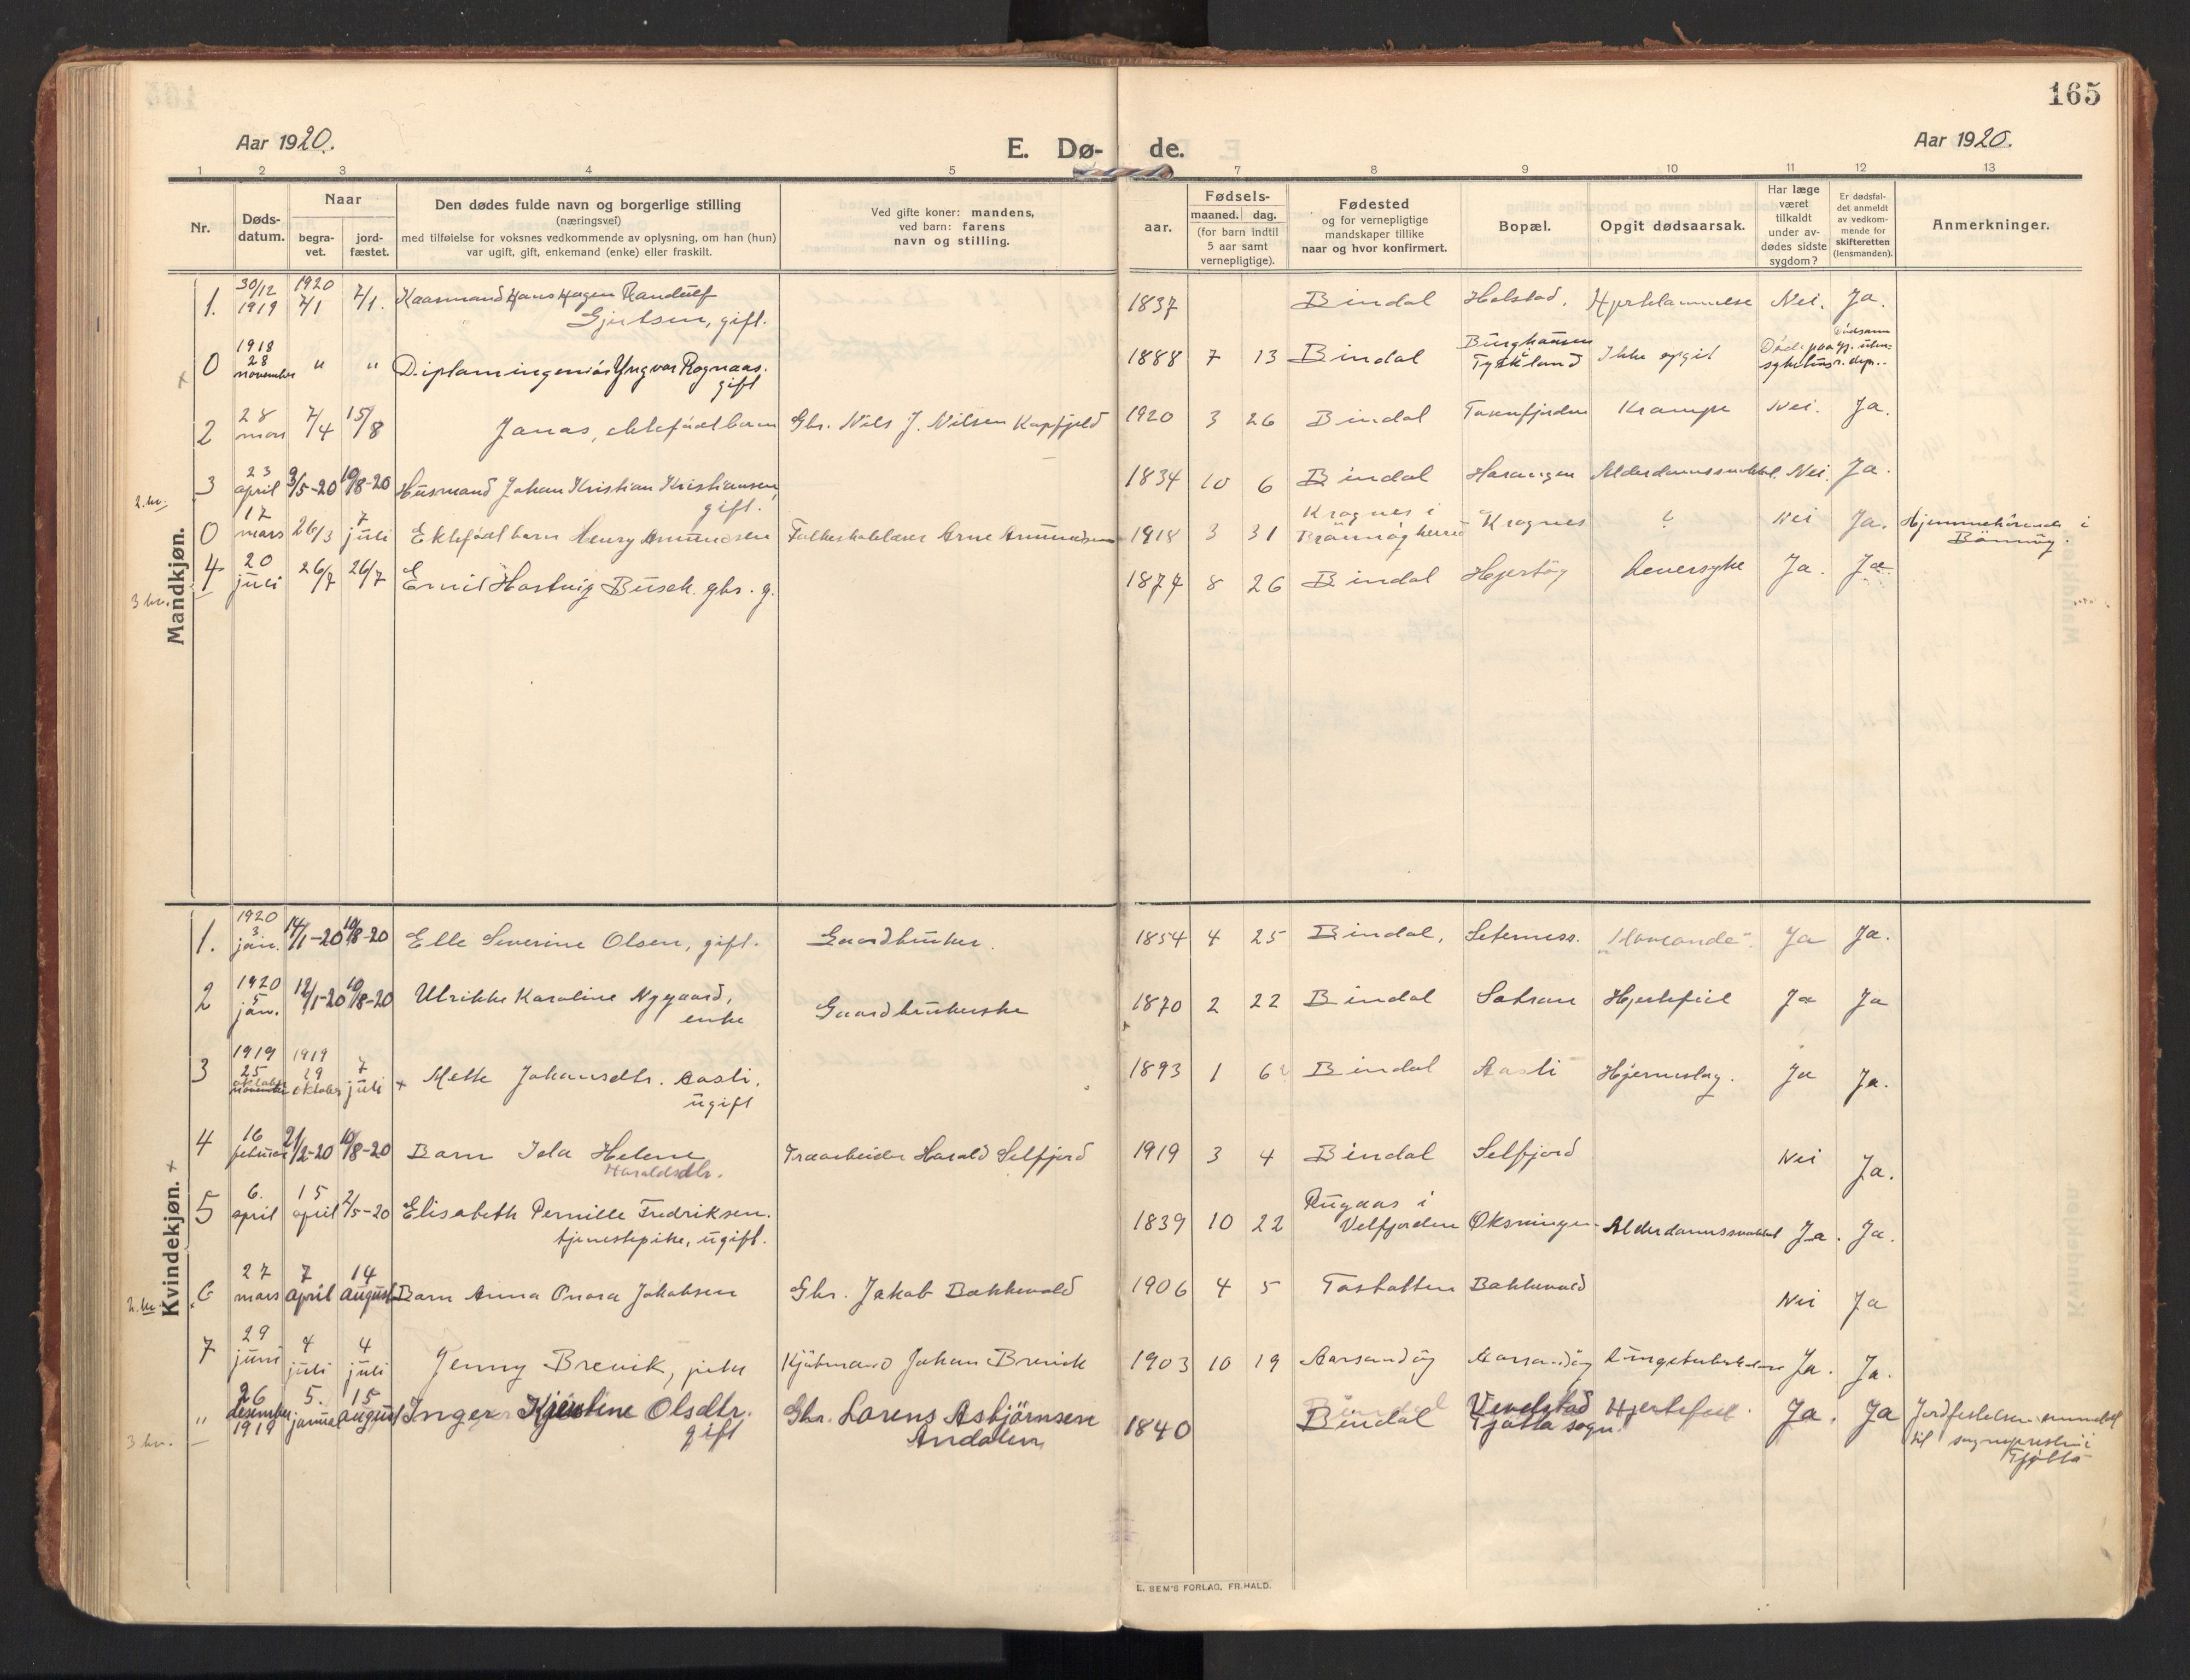 165
Aar 1920.
E. Dø- de.
Aar 1920.
1 2 3 4 5 7 8 9 10 11 12 13
Nr.
Døds-
datum.
Naar
begra-
vet.
jord-
fæstet.
Den dødes fulde navn og borgerlige stilling
(næringsvei)
med tilføielse for voksnes vedkommende av oplysning, om han (hun)
var ugift, gift, enkemand (enke) eller fraskilt.
Ved gifte koner: mandens,
ved barn: farens
navn og stilling.
Fødsels-
aar.
maaned. dag.
(for barn indtil
5 aar samt
vernepligtige).
Fødested
og for vernepligtige
mandskaper tillike
naar og hvor konfirmert.
Bopæl.
Opgit dødsaarsak.
Har læge
været
tilkaldt
under av-
dødes sidste
sygdom?
Er dødsfal-
det anmeldt
av vedkom-
mende for
skifteretten
(lensmanden).
Anmerkninger.
Mandkjøn.
1. 30/12 1919 1920 7/1 7/1. Kaarmand Hans Hagen Randulf
gift. 1837 Bindal Holstad. Hjertelammelse Nei. Ja.
0 1918 28 november " " Diplomingeniör Yngvar Rognaas.
gift 1888 7 13 Bindal Burghausen
Tyskland Ikke opgit
2 28 mars 7/4 15/8 Jonas, ektefödt barn Gbr. Nils J. Nilsen Kapfjeld 1920 3 26 Bindal Tosenfjorden Krampe Nei. Ja.
2.kr. 3 23 april 3/5-20 10/8-20 Husmand Johan Kristian Kristiansen,
gift. 1834 10 6 Bindal Horangen Alderdomssvakhet. Nei. Ja.
0 17 mars 26/3 7 juli Ektefödt barn Henry Amundsen Folkeskolelærer Arne Amundsen 1918 3 31 Krognes i
Brönnöy herred Krognes ? Nei Ja. Hjemmehörende i
Brönnöy.
3 kr. 4 20 juli 26/7 26/7 Emil Hartvig Busch. gbr. g. 1874 8 26 Bindal Hjertöy Leversyke Ja. Ja
Kvindekjøn.
1. 1920 3. jan. 14/1-20 10/8-20 Elle Severine Olsen, gift. Gaardbruker. 1854 4 25 Bindal, Seterness. Ja Ja.
2 1920 5 jan. 12/1-20 10/8-20 Ulrikke Karoline Nygaard,
enke Gaardbrukerske 1870 2 22 Bindal Hjertefeil Ja Ja
3 1919 25 oktober november 1919 29 oktober 7 juli + Mette Johansdtr. Aasli.
ugift 1893 1 6 Bindal Aasli Hjerneslag. Ja Ja.
4 16 februar 21/2-20 10/8-20 Barn Ida Helene
Haraldsdtr. Træarbeider Harald Selfjord 1919 3 4 Bindal Selfjord Nei Ja.
5 6. april 15 april 2/5-20 Elisabeth Pernille Fredriksen.
tjenestepike, ugift. 1839 10 22 Rugaas i
Velfjorden Øksningen Alderdomssvakhet Ja. Ja.
2.kr 6 27 mars 7 april 14 august Barn Anna Onora Jakobsen Gbr. Jakob Bakkevold 1906 4 5 Tosbotten Bakkevold Nei Ja
7 29 juni 4 juli 4 juli Jenny Brevik, pike Kjöbmand Johan Brevik 1903 10 19 Aarsandöy Aarsandöy Lungetuberkulose Ja. Ja.
3 kr. " 26 desember 1919 5. januar 15 august Inger Kjerstine Olsdtr.
gift Gbr. Lorens Asbjörnsen
Andalen 1840 Bindal
Tjötta sogn. Hjertefeil. Ja. Ja Jordfestelsen anmeldt
til sognepresten i
Tjötta
E. SEM'S FORLAG, FR.HALD.